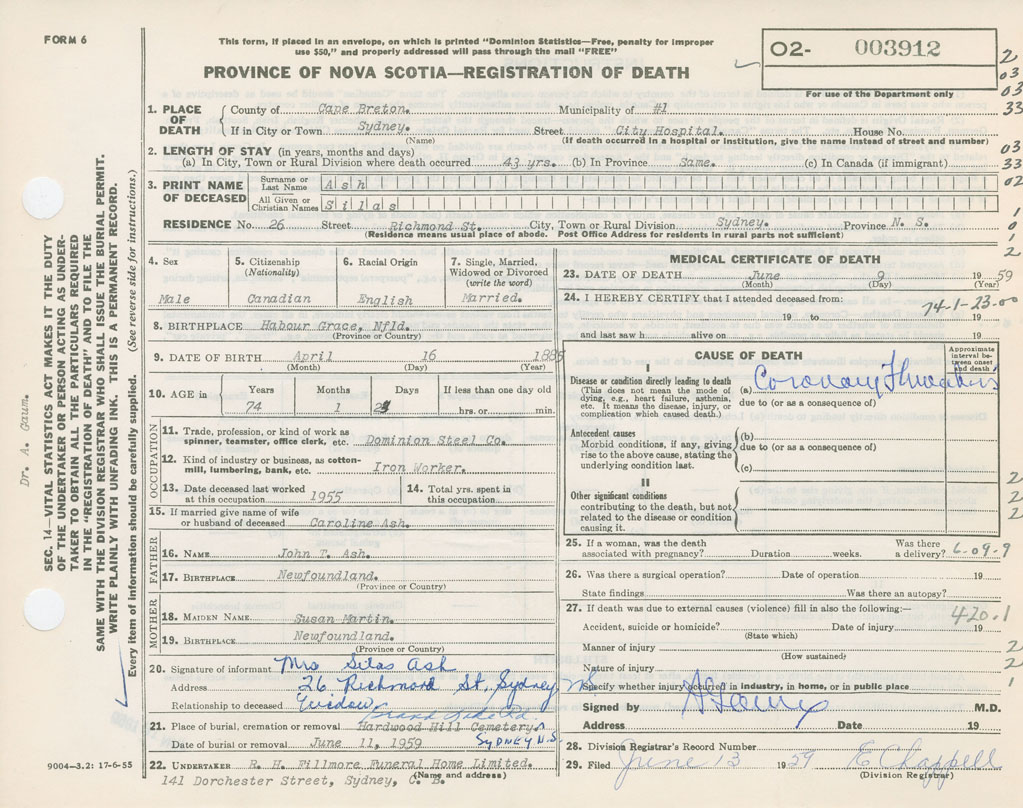 FORM 6
This form, if placed in an envelope, on which is printed "Dominion Statistics—Free, penalty for improper
use $50," and properly addressed will pass through the mail "FREE"
PROVINCE OF NOVA SCOTIA—REGISTRATION OF DEATH
02- 003912
For use of the Department only
2
03
03
33
03
33
02
1
0
1
2
1. PLACE OF DEATH
County of Cape Breton. Municipality of #1
If in City or Town Sydney. Street City Hospital. House No.
(Name) (If death occurred in a hospital or institution, give the name instead of street and number)
2. LENGTH OF STAY (in years, months and days)
(a) In City, Town or Rural Division where death occurred 43 yrs. (b) In Province Same. (c) In Canada (if immigrant)
3. PRINT NAME OF DECEASED
Surname or Last Name Ash
All Given or Christian Names Silas
RESIDENCE No. 26 Street Richmond St. City, Town or Rural Division Sydney. Province N. S.
(Residence means usual place of abode. Post Office Address for residents in rural parts not sufficient)
4. Sex
Male
5. Citizenship (Nationality)
Canadian
6. Racial Origin
English
7. Single, Married, Widowed or Divorced (write the word)
Married.
8. BIRTHPLACE Habour Grace, Nfld.
(Province or Country)
9. DATE OF BIRTH April 16 1885
(Month) (Day) (Year)
10. AGE in
Years Months Days If less than one day old
74 1 hrs. or min.
OCCUPATION
11. Trade, profession, or kind of work as
spinner, teamster, office clerk, etc. Dominion Steel Co.
12. Kind of industry or business, as cotton-
mill, lumbering, bank, etc. Iron Worker.
13. Date deceased last worked
at this occupation 1955
14. Total yrs. spent in
this occupation
15. If married give name of wife
or husband of deceased Caroline Ash.
FATHER
16. NAME John T. Ash.
17. BIRTHPLACE Newfoundland.
(Province or Country)
MOTHER
18. MAIDEN NAME Susan Martin.
19. BIRTHPLACE Newfoundland.
(Province or Country)
20. Signature of informant Mrs Silas Ash
Address 26 Richmond St, Sydney NS
Relationship to deceased Widow
21. Place of burial, cremation or removal Hardwood Hill Cemetery.
SYDNEY N.S.
Date of burial or removal June 11, 1959
22. UNDERTAKER R. H. Fillmore Funeral Home Limited.
(Name and address)
141 Dorchester Street, Sydney, C. B.
MEDICAL CERTIFICATE OF DEATH
23. DATE OF DEATH June 9 1959
(Month) (Day) (Year)
24. I HEREBY CERTIFY that I attended deceased from:
74-1-23-00
19 to 19
and last saw h alive on 19
CAUSE OF DEATH
Approximate interval between onset and death
I
Disease or condition directly leading to death
(This does not mean the mode of
dying, e.g., heart failure, asthenia,
etc. It means the disease, injury, or
complication which caused death.)
(a) Coronary Thrombosis
due to (or as a consequence of)
Antecedent causes
Morbid conditions, if any, giving
rise to the above cause, stating the
underlying condition last.
(b)
due to (or as a consequence of)
(c)
II
Other significant conditions
contributing to the death, but not
related to the disease or condition
causing it.
2
2
2
25. If a woman, was the death
associated with pregnancy? Duration weeks.
Was there a delivery? 6-09-9
26. Was there a surgical operation? Date of operation 19
State findings Was there an autopsy?
27. If death was due to external causes (violence) fill in also the following:—
420.1
Accident, suicide or homicide? Date of injury 19
(State which)
Manner of injury 2
(How sustained)
Nature of injury 2
Specify whether injury occurred in industry, in home, or in public place 1
Signed by M.D.
Address Date 19
28. Division Registrar's Record Number
29. Filed June 13 1959 E Chappell
(Division Registrar)
Dr. A. Gaum.
SEC. 14—VITAL STATISTICS ACT MAKES IT THE DUTY
OF THE UNDERTAKER OR PERSON ACTING AS UNDER-
TAKER TO OBTAIN ALL THE PARTICULARS REQUIRED
IN THE "REGISTRATION OF DEATH" AND TO FILE THE
SAME WITH THE DIVISION REGISTRAR WHO SHALL ISSUE THE BURIAL PERMIT.
WRITE PLAINLY WITH UNFADING INK. THIS IS A PERMANENT RECORD.
Every item of information should be carefully supplied. (See reverse side for instructions.)
9004—3.2: 17-6-55